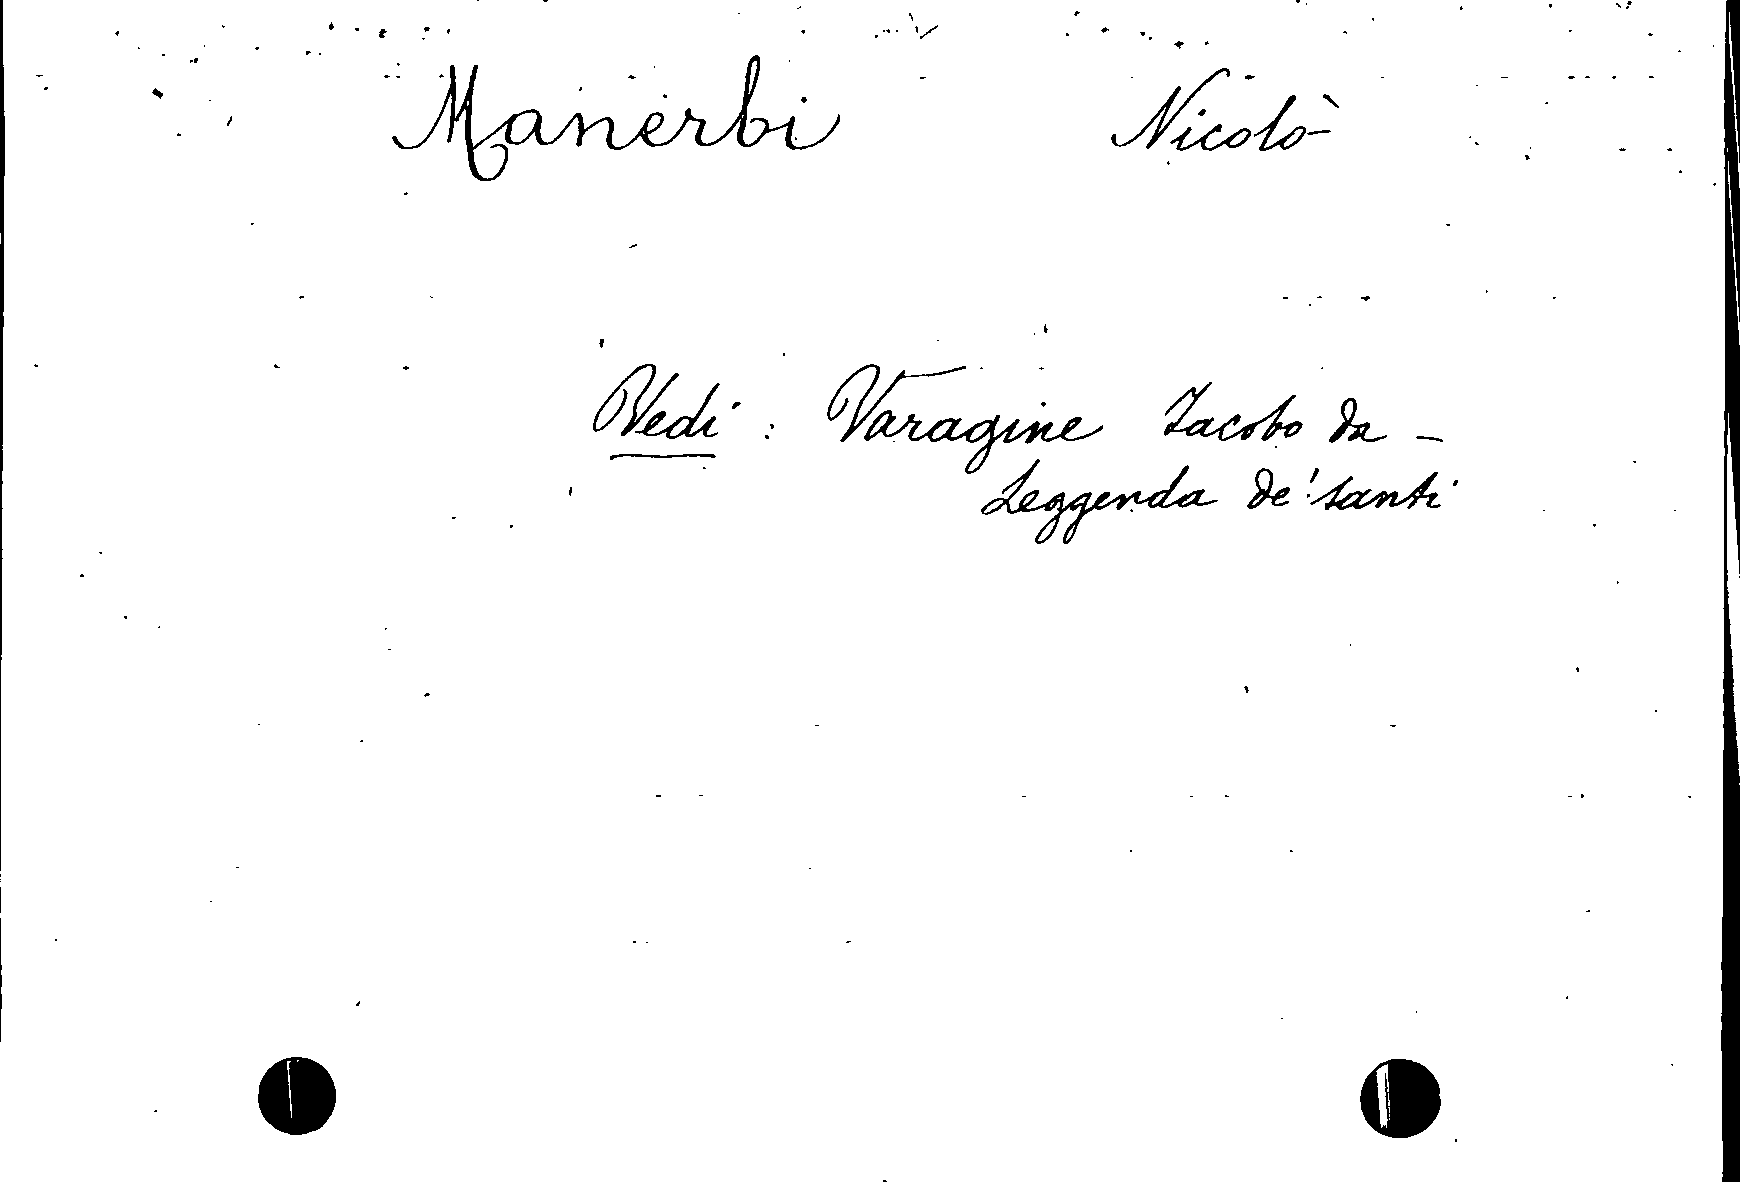 Manerbi Nicolò
Vedi : Varagine Jacobo da –
Leggenda de' santi